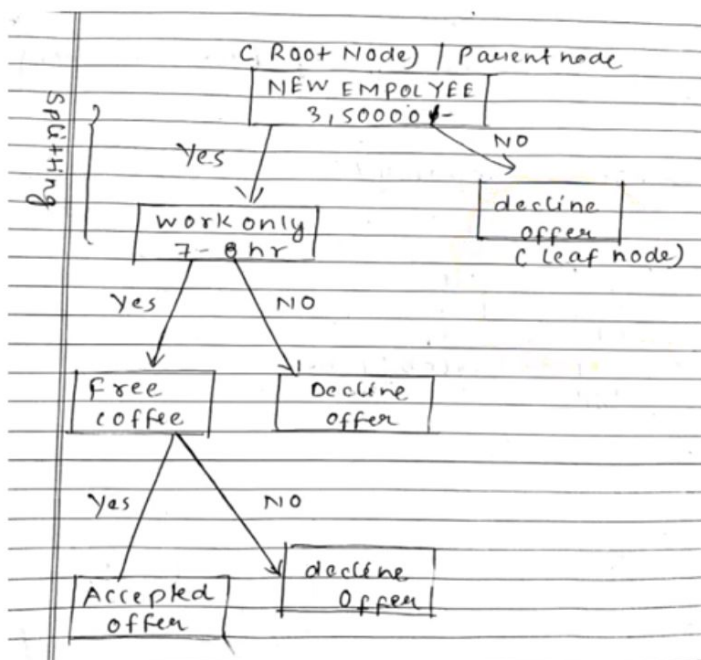 ( Root Node) | Parent node
NEW EMPOLYEE
3,50000/-
Splitting
Yes
NO
work only
7-8hr
decline
offer
( leaf node)
Yes
NO
Free
coffee
Decline
offer
Yes
NO
Accepted
offer
decline
offer